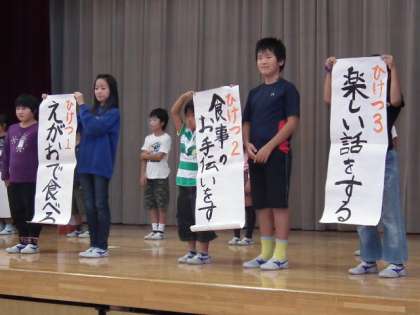 ひけつ1
えがおで食べる
ひけつ2
食事の
お手伝いをす
ひけつ3
楽しい話をする